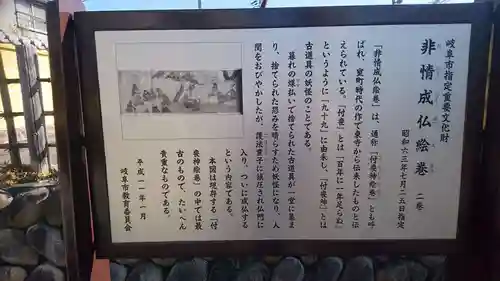 岐阜市指定重要文化財
非情成仏絵巻 二巻
昭和六三年七月二五日指定
「非情成仏絵巻」は、通称「付喪神絵巻」とも呼
ばれ、室町時代の作で東寺から伝来したものと伝
えられている。「付喪」とは「百年に一年足らぬ」
というように「九十九」に由来し、「付喪神」とは
古道具の妖怪のことである。
暮れの煤払いで捨てられた古道具が一堂に集ま
り、捨てられた怨みを晴らすため妖怪になり、人
間をおびやかしたが、護法童子に鎮圧され仏門に
入り、ついには成仏する
という内容である。
本図は現存する「付
喪神絵巻」の中では最
古のもので、たいへん
貴重なものである。
平成一一年一月
岐阜市教育委員会